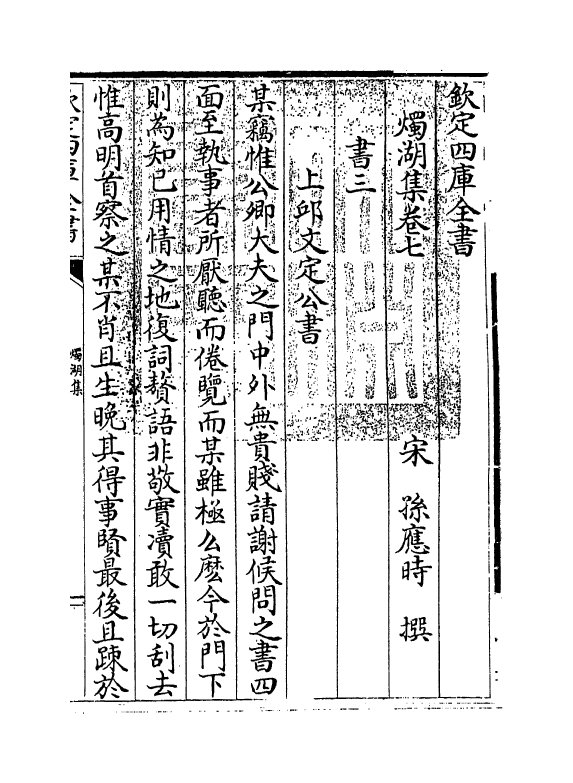 欽定四庫全書
燭湖集卷七
宋 孫應時 撰
書三
上邱文定公書
某竊惟公卿大夫之門中外無貴賤請謝候問之書四
面至執事者所厭聽而倦覽而某雖極么麽今於門下
則為知已用情之地復詞贅語非敬實凟敢一切刮去
惟高明首察之某不肖且生晚其得事賢最後且踈於
欽定四庫全書
燭湖集